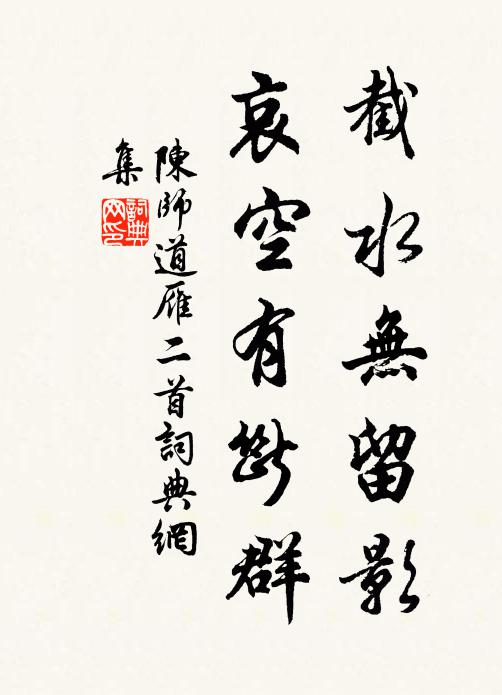 截水無留影
哀空有断群
陳師道雁二首詞典網
集
詞典
网印